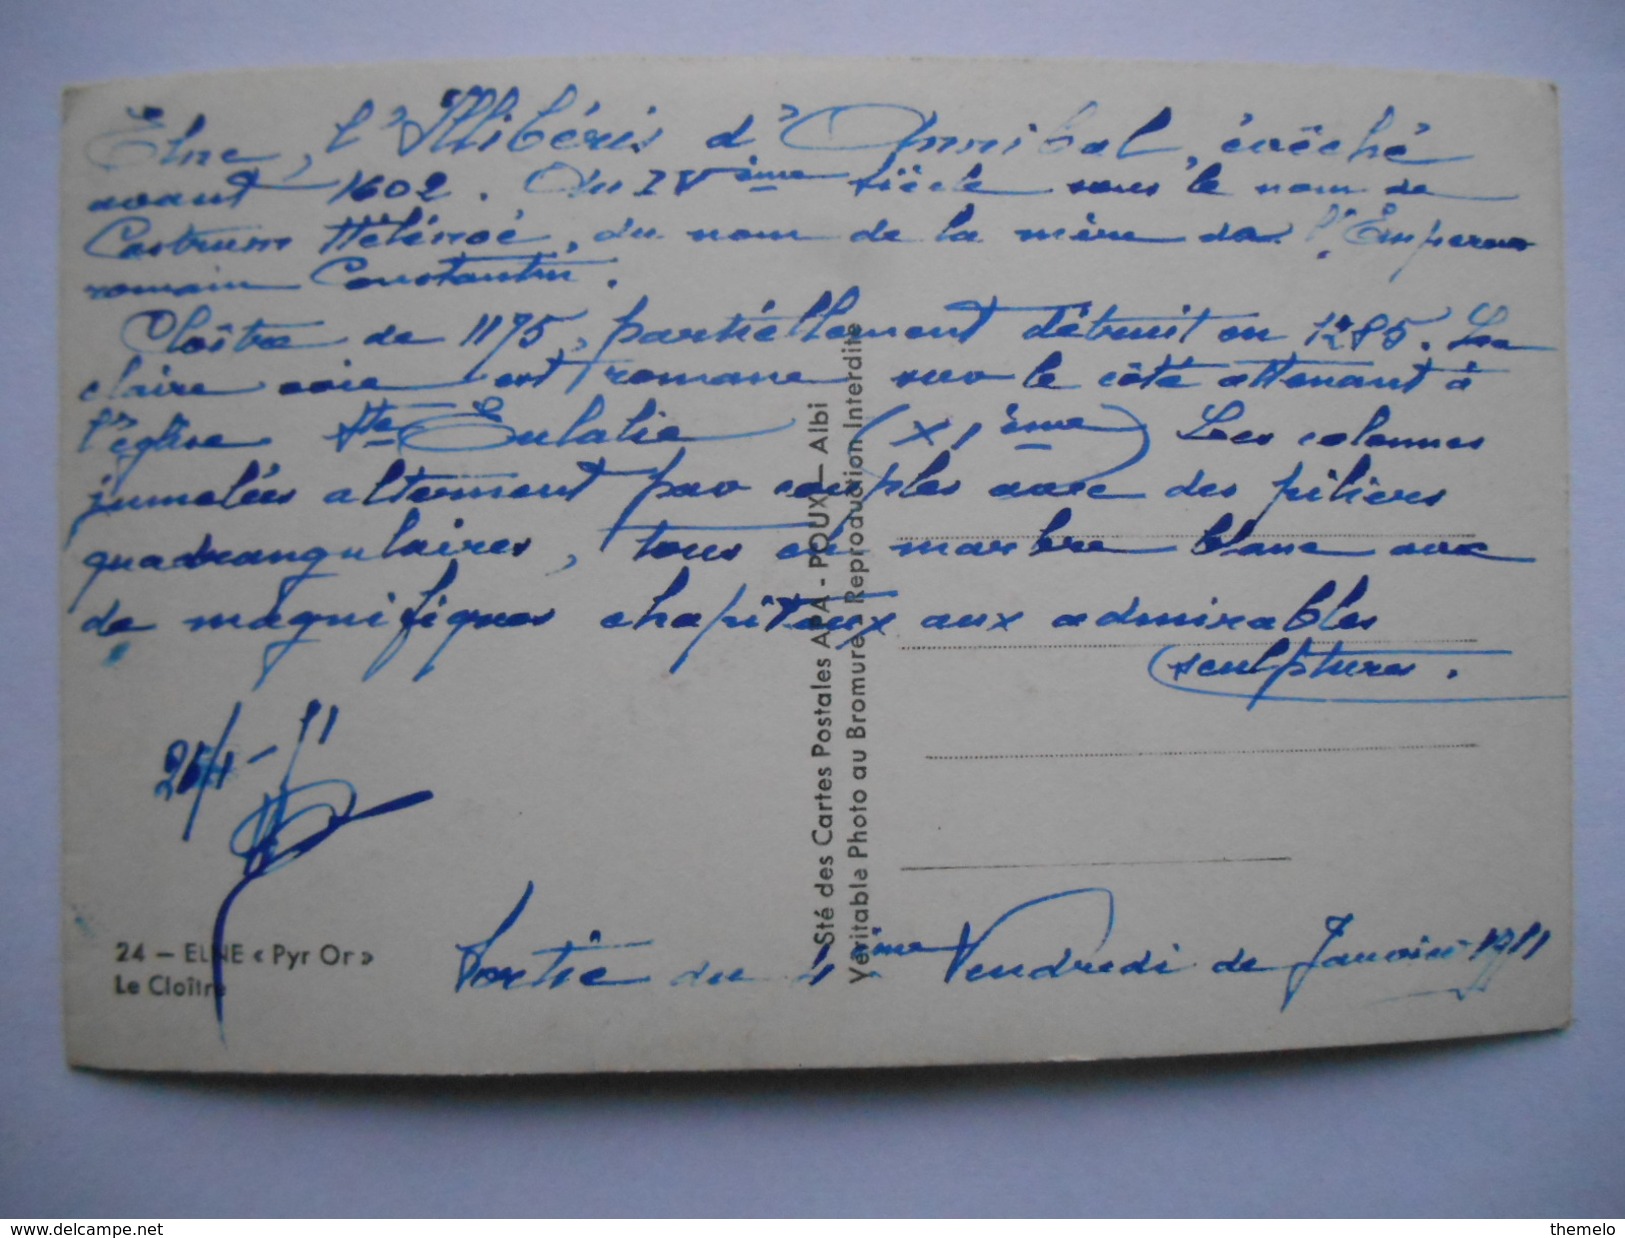 Elne, l'Illibéris d'Annibal, évêché
avant 1602. Au IVème siècle sous le nom de
Castrum Hélénoé, du nom de la mère de l'Empereur
romain Constantin.
Cloître de 1175, partiellement détruit en 1285. La
claire voie est romane sur le côté attenant à
l'église Ste Eulalie (XIème) Les colonnes
jumelées alternent par couples avec des piliers
quadrangulaires, tous en marbre blanc avec
de magnifiques chapiteaux aux admirables
sculptures.
24 — ELNE « Pyr Or »
Le Cloître
Sortie du 4ème Vendredi de Janvier
Sté des Cartes Postales APA - POUX — Albi
Véritable Photo au Bromure - Reproduction Interdite
www.delcampe.net
themelo